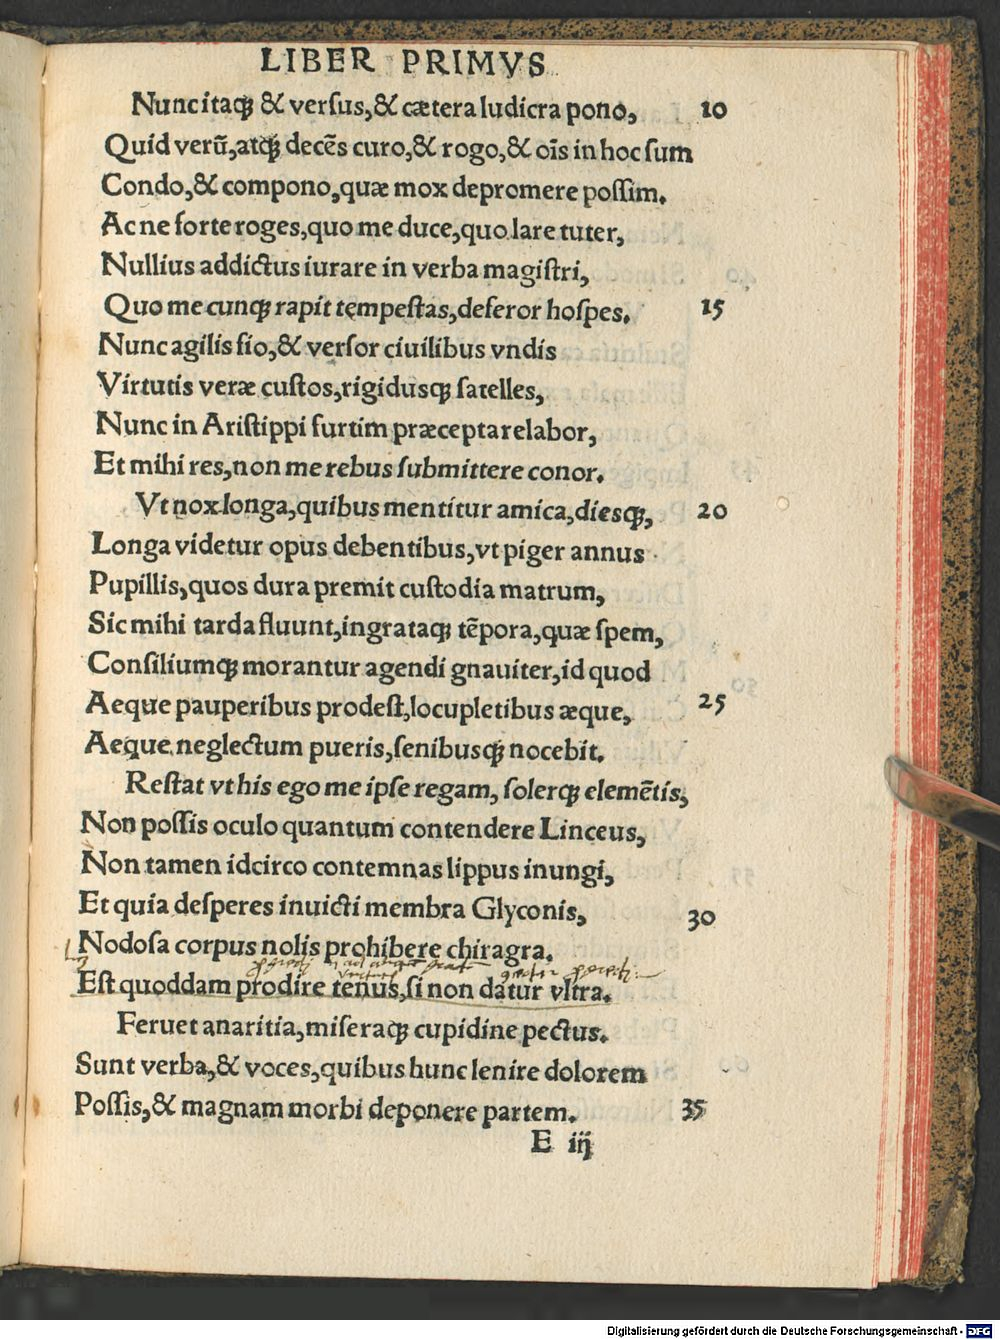 LIBER PRIMVS
Nunc itaqꝫ & verſus, & cætera ludicra pono, 10
Quid verũ, atqꝫ decẽs curo, & rogo, & oĩs in hoc ſum
Condo, & compono, quæ mox depromere poſſim.
Ac ne forte roges, quo me duce, quo lare tuter,
Nullius addictus iurare in verba magiſtri,
Quo me cunqꝫ rapit tempeſtas, deferor hoſpes. 15
Nunc agilis fio, & verſor ciuilibus vndis
Virtutis veræ cuſtos, rigidusqꝫ ſatelles,
Nunc in Ariſtippi furtim præcepta relabor,
Et mihi res, non me rebus ſubmittere conor.
Vt nox longa, quibus mentitur amica, diesqꝫ, 20
Longa videtur opus debentibus, vt piger annus
Pupillis, quos dura premit cuſtodia matrum,
Sic mihi tarda fluunt, ingrataqꝫ tẽpora, quæ ſpem,
Conſiliumqꝫ morantur agendi gnauiter, id quod
Aeque pauperibus prodeſt, locupletibus æque, 25
Aeque neglectum pueris, ſenibusqꝫ nocebit.
Reſtat vt his ego me ipſe regam, ſolerqꝫ elemẽtis,
Non poſſis oculo quantum contendere Linceus,
Non tamen idcirco contemnas lippus inungi,
Et quia deſperes inuicti membra Glyconis, 30
Nodoſa corpus nolis prohibere chiragra.
Eſt quoddam prodire tenus, ſi non datur vltra.
Feruet anaritia, miſeraqꝫ cupidine pectus.
Sunt verba, & voces, quibus hunc lenire dolorem
Poſſis, & magnam morbi deponere partem. 35
E iij
Digitalisierung gefördert durch die Deutsche Forschungsgemeinschaft - DFG